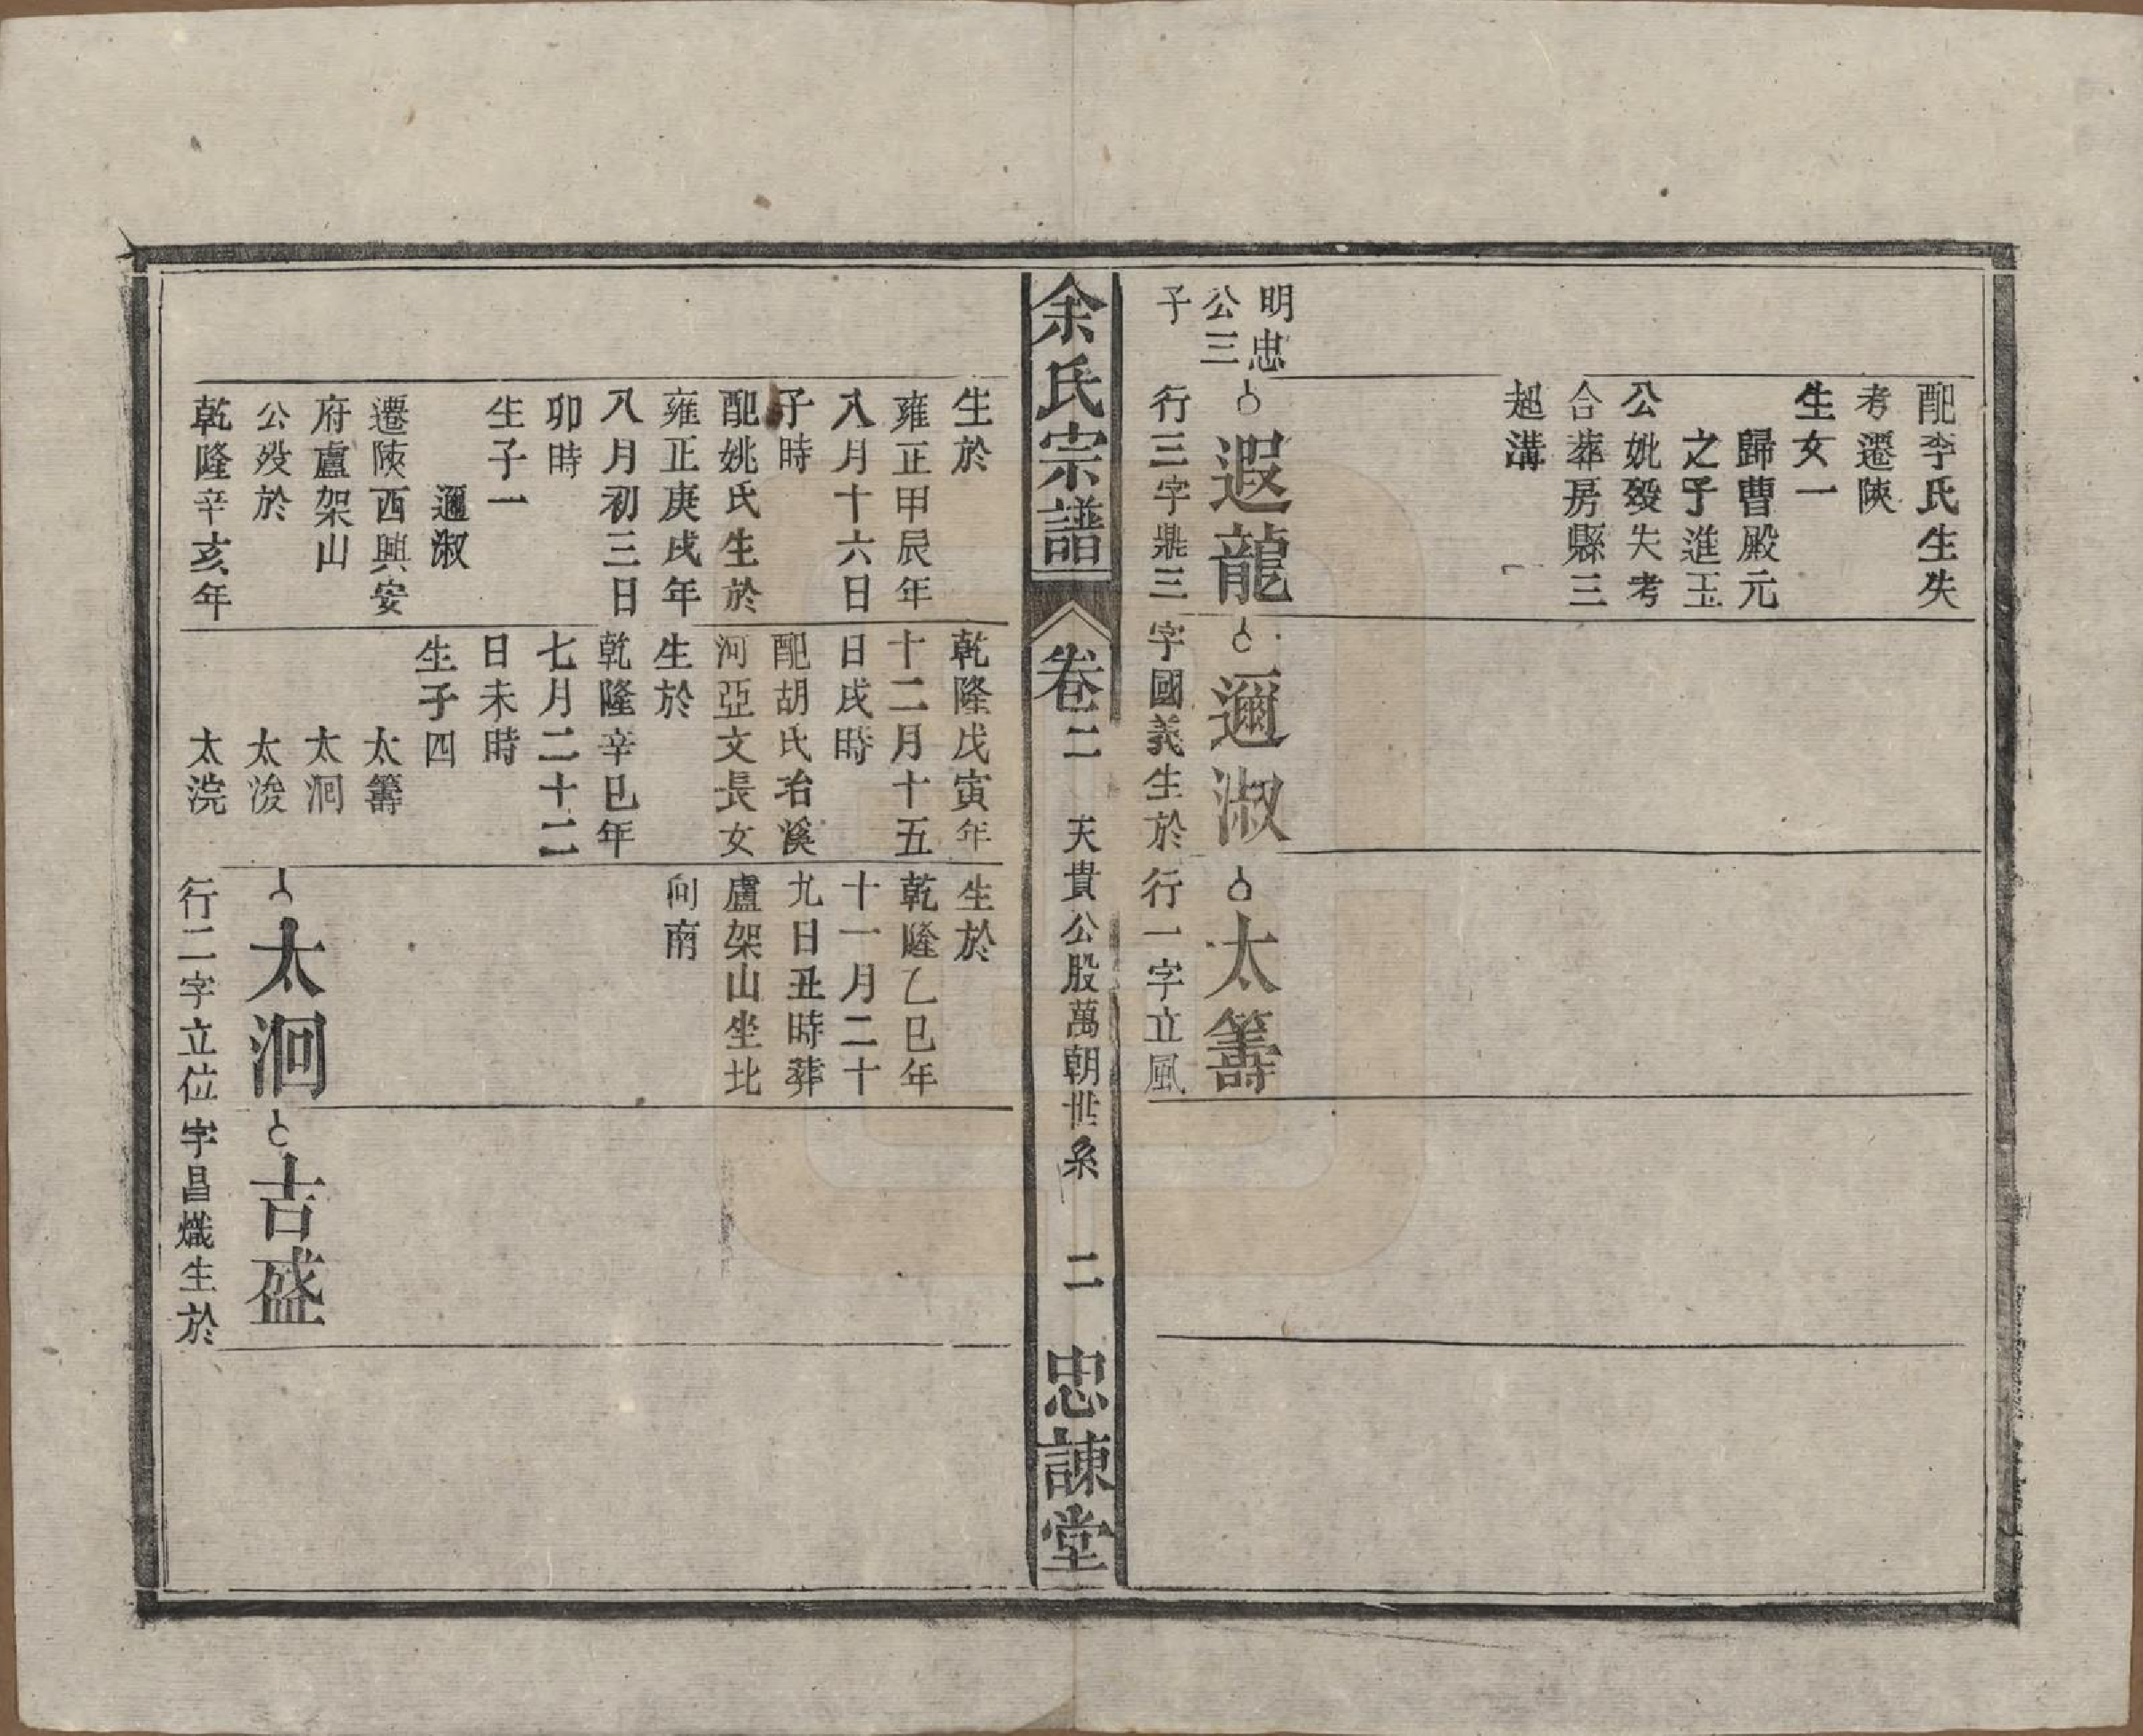 配李氏生失
考遷陝
生女一
歸曹殿元
之子進玉
公妣歿失考
合葬房縣三
起溝
明忠
公三
子
遐龍
行三字鼎三
邇淑
字國義生於
太籌
行一字立風
余氏宗譜
卷二
天貴公股萬朝世系
二
忠諫堂
生於
雍正甲辰年
八月十六日
子時
配姚氏生於
雍正庚戌年
八月初三日
卯時
生子一
邇淑
遷陝西興安
府盧架山
公歿於
乾隆辛亥年
乾隆戊寅年
十二月十五
日戌時
配胡氏治溪
河亞文長女
生於
乾隆辛巳年
七月二十二
日未時
生子四
太籌
太泂
太浚
太浣
生於
乾隆乙巳年
十一月二十
九日丑時葬
盧架山坐北
向南
太泂
行二字立位
吉盛
字昌熾生於